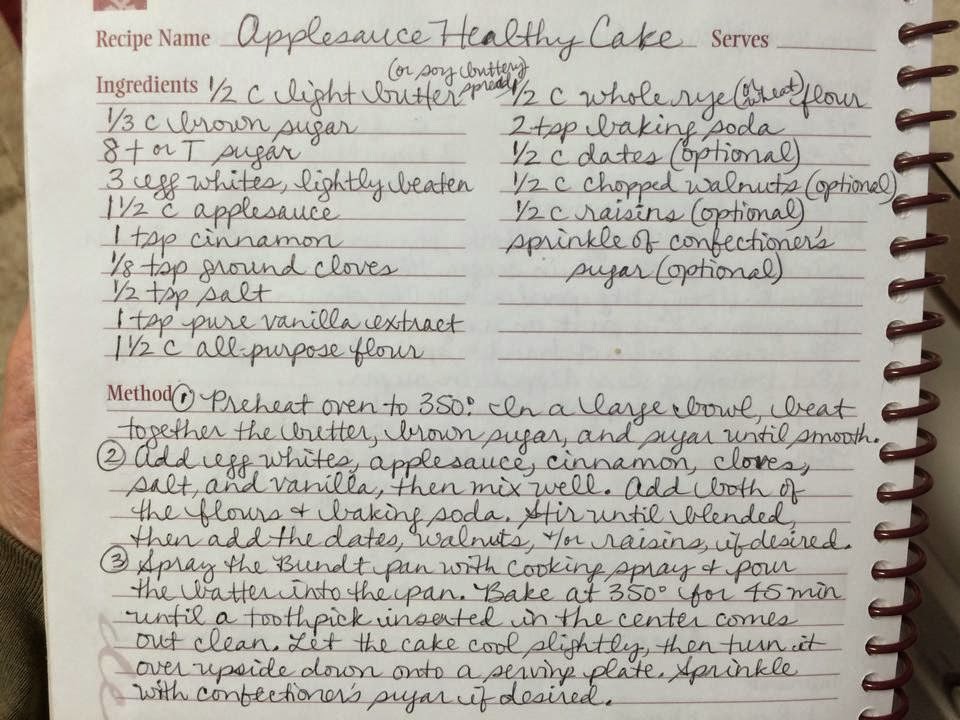 Recipe Name Applesauce Healthy Cake Serves
(or soy buttery spread)
Ingredients 1/2 c light butter
1/3 c brown sugar
8 t or T sugar
3 egg whites, lightly beaten
1 1/2 c applesauce
1 tsp cinnamon
1/8 tsp ground cloves
1/2 tsp salt
1 tsp pure vanilla extract
1 1/2 c all-purpose flour
1/2 c whole rye (or wheat) flour
2 tsp baking soda
1/2 c dates (optional)
1/2 c chopped walnuts (optional)
1/2 c raisins (optional)
sprinkle of confectioner's
sugar (optional)
Method ① Preheat oven to 350°. In a large bowl, beat
together the butter, brown sugar, and sugar until smooth.
② Add egg whites, applesauce, cinnamon, cloves,
salt, and vanilla, then mix well. Add both of
the flours & baking soda. Stir until blended,
then add the dates, walnuts, +/or raisins, if desired.
③ Spray the Bundt pan with cooking spray & pour
the batter into the pan. Bake at 350° for 45 min
until a toothpick inserted in the center comes
out clean. Let the cake cool slightly, then turn it
over upside down onto a serving plate. Sprinkle
with confectioner's sugar if desired.